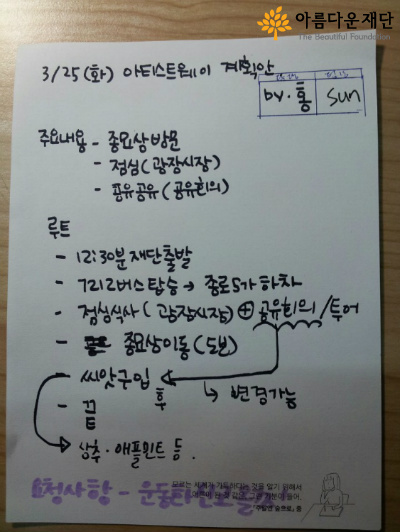 아름다운재단
The Beautiful Foundation
3/25(화) 아티스트웨이 계획안
by.홍 Sun
주요내용 - 종묘상방문
- 점심(광장시장)
- 풍유공유(공유회의)
루트
- 12:30분 재단출발
- 7212버스탑승 → 종로5가 하차
- 점심식사(광장시장) ⊕ 공유회의/투어
- 종묘상이동(도보)
- 씨앗구입 후
↳ 변경가능
- 끝
→ 상추·애플민트 등.
요청사항 - 운동화신고